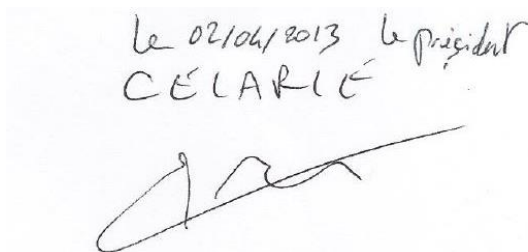 Le 02/04/2013 le président
CÉLARIÉ